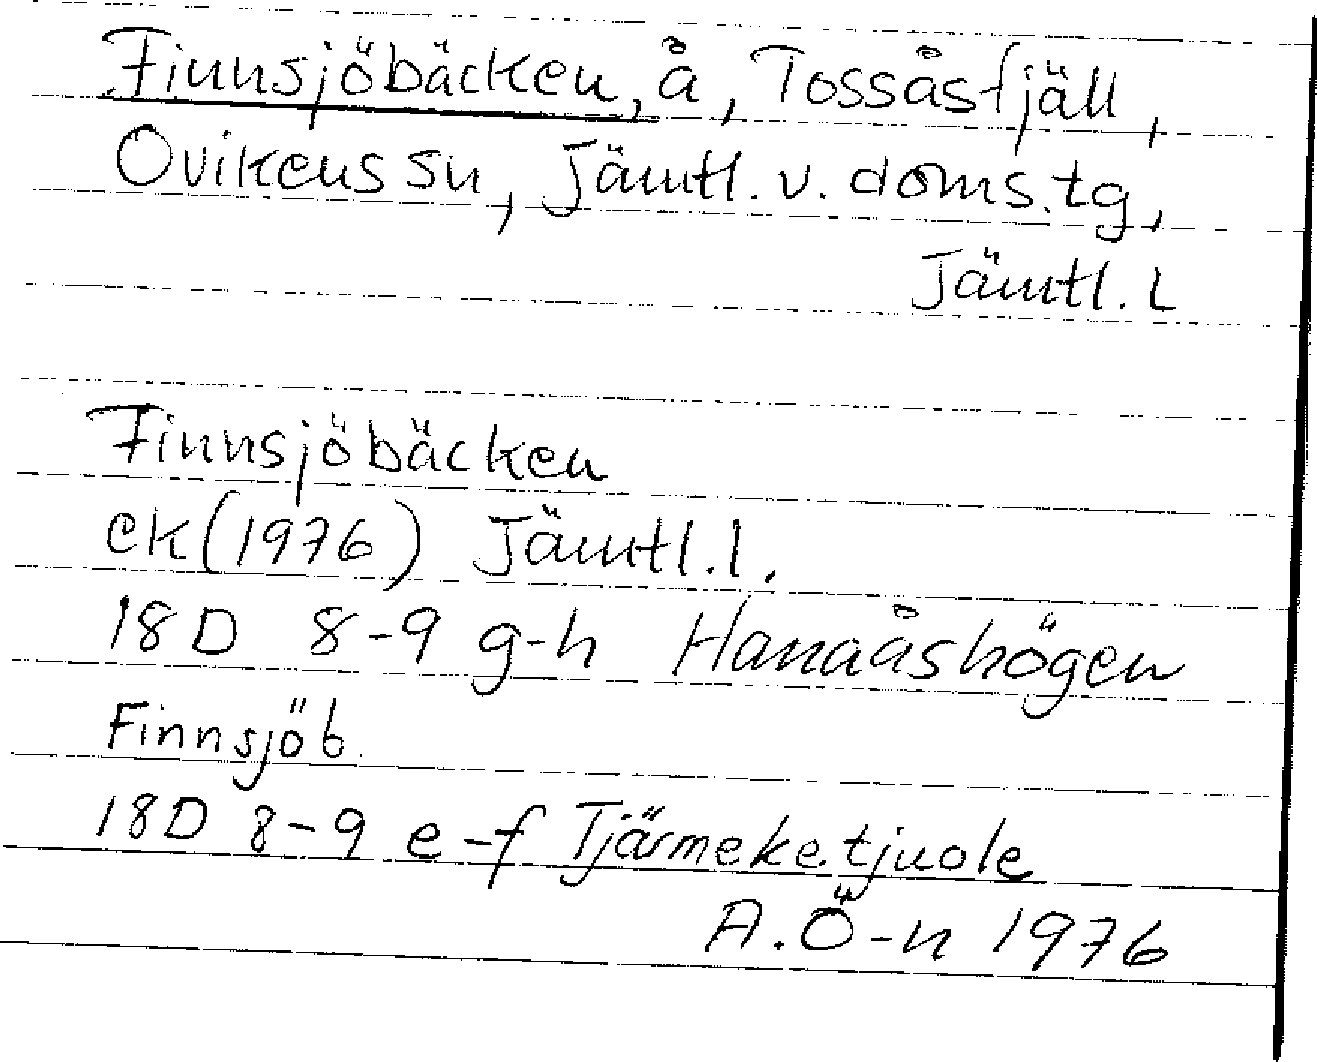 Finnsjöbäcken, å, Tossåsfjäll,
Ovikens sn, Jämtl. v. doms. tg,
Jämtl. L
Finnsjöbäcken
ek (1976) Jämtl. l.
18D 8-9 g-h Hanaåshögen
Finnsjöb.
18D 8-9 e-f Tjärmeketjuole
A. Ö-n 1976